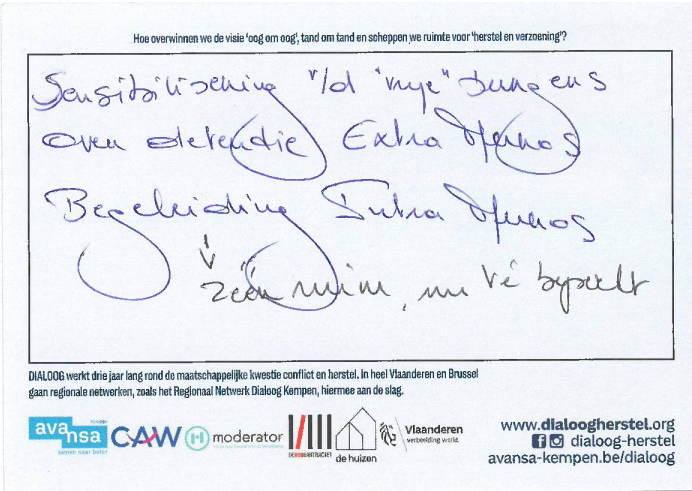 Hoe overwinnen we de visie 'oog om oog', tand om tand en scheppen we ruimte voor 'herstel en verzoening'?
Sensibilisering v/d "vrije" burgers
over detentie Extra Muros
Begeleiding Intra Muros
zéér ruim, nu té beperkt
DIALOOG werkt drie jaar lang rond de maatschappelijke kwestie conflict en herstel. In heel Vlaanderen en Brussel
gaan regionale netwerken, zoals het Regionaal Netwerk Dialoog Kempen, hiermee aan de slag.
avansa
samen naar beter
CAW
moderator
de huizen
Vlaanderen
verbeelding werkt
www.dialoogherstel.org
dialoog-herstel
avansa-kempen.be/dialoog